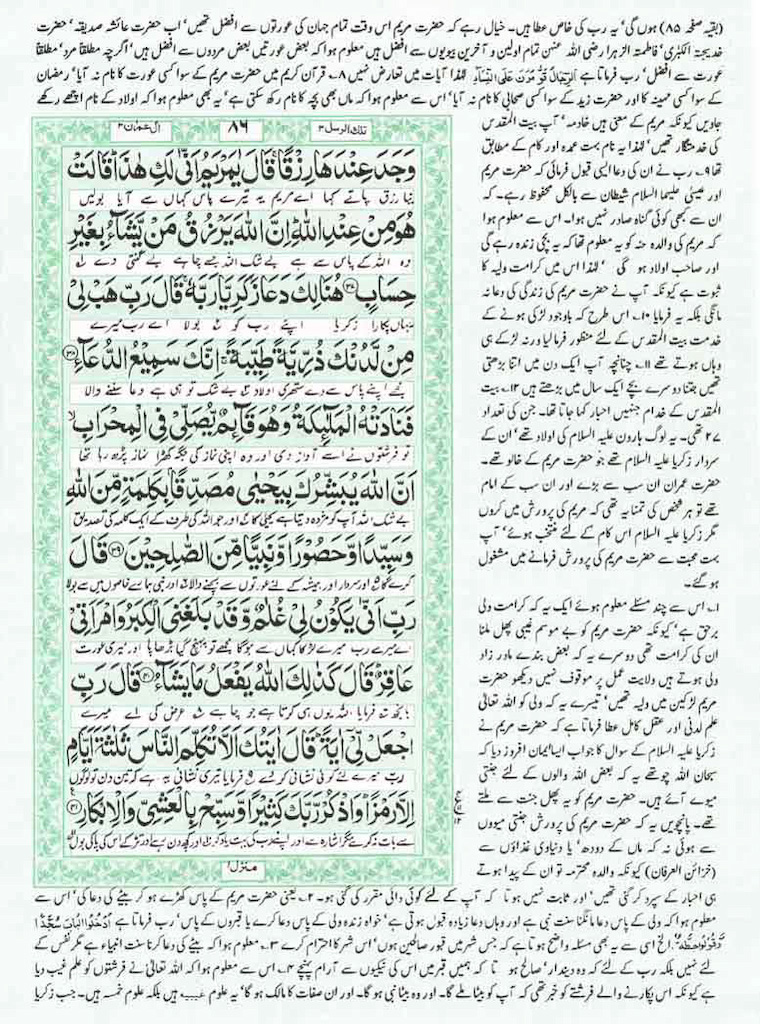 (بقیہ صفحہ ۸۵) ہوں گی' یہ رب کی خاص عطا ہیں۔ خیال رہے کہ حضرت مریم اس وقت تمام جہان کی عورتوں سے افضل تھیں' اب حضرت عائشہ صدیقہ' حضرت
خدیجۃ الکبریٰ' فاطمۃ الزہرا رضی اللہ عنہن تمام اولین و آخرین بیویوں سے افضل ہیں معلوم ہوا کہ بعض عورتیں بعض مردوں سے افضل ہیں' اگرچہ مطلقاً مرد' مطلقاً
عورت سے افضل' رب فرماتا ہے لہٰذا آیات میں تعارض نہیں ۸۔ قرآن کریم میں حضرت مریم کے سوا کسی عورت کا نام نہ آیا' رمضان
کے سوا کسی مہینہ کا اور حضرت زید کے سوا کسی صحابی کا نام نہ آیا' اس سے معلوم ہوا کہ ماں بھی بچہ کا نام رکھ سکتی ہے' یہ بھی معلوم ہوا کہ اولاد کے نام اچھے رکھے
جاویں کیونکہ مریم کے معنی ہیں خادمہ' آپ بیت المقدس
کی خدمتگار تھیں' لہٰذا یہ نام بہت عمدہ اور کام کے مطابق
تھا ۹۔ رب نے ان کی دعا ایسی قبول فرمائی کہ حضرت مریم
اور عیسیٰ علیہما السلام شیطان سے بالکل محفوظ رہے۔ کہ
ان سے کبھی کوئی گناہ صادر نہیں ہوا۔ اس سے معلوم ہوا
کہ مریم کی والدہ حنہ کو یہ معلوم تھا کہ یہ بچی زندہ رہے گی
اور صاحب اولاد ہو گی' لہٰذا اس میں کرامت ولیہ کا
ثبوت ہے کیونکہ آپ نے حضرت مریم کی زندگی کی دعا نہ
مانگی بلکہ یہ فرمایا ۱۰۔ اس طرح کہ باوجود لڑکی ہونے کے
خدمت بیت المقدس کے لئے منظور فرما لیا ورنہ لڑکے ہی
وہاں ہوتے تھے ۱۱۔ چنانچہ آپ ایک دن میں اتنا بڑھتی
تھیں جتنا دوسرے بچے ایک سال میں بڑھتے ہیں ۱۲۔ بیت
المقدس کے خدام جنہیں احبار کہا جاتا تھا۔ جن کی تعداد
۲۷ تھی۔ یہ لوگ ہارون علیہ السلام کی اولاد تھے' ان کے
سردار زکریا علیہ السلام تھے جو حضرت مریم کے خالو تھے۔
حضرت عمران ان سب سے بڑے اور ان سب کے امام
تھے تو ہر شخص کی تمنا یہ تھی کہ مریم کی پرورش میں کروں
مگر زکریا علیہ السلام اس کام کے لئے منتخب ہوئے' آپ
بہت محبت سے حضرت مریم کی پرورش فرمانے میں مشغول
ہو گئے۔
۱۔ اس سے چند مسئلے معلوم ہوئے ایک یہ کہ کرامت ولی
برحق ہے' کیونکہ حضرت مریم کو بے موسم غیبی پھل ملنا
ان کی کرامت تھی دوسرے یہ کہ بعض بندے مادر زاد
ولی ہوتے ہیں ولایت عمل پر موقوف نہیں دیکھو حضرت
مریم لڑکپن میں ولیہ تھیں' تیسرے یہ کہ ولی کو اللہ تعالیٰ
علم لدنی اور عقل کامل عطا فرماتا ہے کہ حضرت مریم نے
زکریا علیہ السلام کے سوال کا جواب ایسا ایمان افروز دیا کہ
سبحان اللہ چوتھے یہ کہ بعض اللہ والوں کے لئے جنتی
میوے آئے ہیں۔ حضرت مریم کو یہ پھل جنت سے ملتے
تھے۔ پانچویں یہ کہ حضرت مریم کی پرورش جنتی میووں
سے ہوئی نہ کہ ماں کے دودھ' یا دنیاوی غذاؤں سے
(خزائن العرفان) کیونکہ والدہ محترمہ تو ان کے پیدا ہوتے
تلك الرسل ۳ ۸۶ ال عمران ۳
وَجَدَ عِنْدَهَا رِزْقًا قَالَ يٰمَرْيَمُ اَنّٰى لَكِ هٰذَا قَالَتْ
نیا رزق پاتے کہا اے مریم یہ تیرے پاس کہاں سے آیا بولیں
هُوَ مِنْ عِنْدِ اللّٰهِ اِنَّ اللّٰهَ يَرْزُقُ مَنْ يَّشَآءُ بِغَيْرِ
وہ اللہ کے پاس سے ہے بے شک اللہ جسے چاہے بے گنتی دے
حِسَابٍ ۳۷ هُنَالِكَ دَعَا زَكَرِيَّا رَبَّهٗ قَالَ رَبِّ هَبْ لِيْ
یہاں پکارا زکریا اپنے رب کو بولا اے رب میرے
مِنْ لَّدُنْكَ ذُرِّيَّةً طَيِّبَةً اِنَّكَ سَمِيْعُ الدُّعَآءِ ۳۸
مجھے اپنے پاس سے دے ستھری اولاد بے شک تو ہی ہے دعا سننے والا
فَنَادَتْهُ الْمَلٰٓئِكَةُ وَهُوَ قَآئِمٌ يُّصَلِّيْ فِي الْمِحْرَابِ
تو فرشتوں نے اسے آواز دی اور وہ اپنی نماز کی جگہ کھڑا نماز پڑھ رہا تھا
اَنَّ اللّٰهَ يُبَشِّرُكَ بِيَحْيٰى مُصَدِّقًا بِكَلِمَةٍ مِّنَ اللّٰهِ
بے شک اللہ آپ کو مژدہ دیتا ہے یحییٰ کا جو اللہ کی طرف کے ایک کلمہ کی تصدیق
وَسَيِّدًا وَّحَصُوْرًا وَّنَبِيًّا مِّنَ الصّٰلِحِيْنَ ۳۹ قَالَ
کرے گا اور سردار اور ہمیشہ کے لئے عورتوں سے بچنے والا اور نبی ہمارے خاصوں میں سے بولا
رَبِّ اَنّٰى يَكُوْنُ لِيْ غُلٰمٌ وَّقَدْ بَلَغَنِيَ الْكِبَرُ وَامْرَاَتِيْ
اے میرے رب میرے لڑکا کہاں سے ہوگا مجھے تو پہنچ گیا بڑھاپا اور میری عورت
عَاقِرٌ قَالَ كَذٰلِكَ اللّٰهُ يَفْعَلُ مَا يَشَآءُ ۴۰ قَالَ رَبِّ
بانجھ فرمایا اللہ یوں ہی کرتا ہے جو چاہے عرض کی اے میرے
اجْعَلْ لِّيْٓ اٰيَةً قَالَ اٰيَتُكَ اَلَّا تُكَلِّمَ النَّاسَ ثَلٰثَةَ اَيَّامٍ
رب میرے لئے کوئی نشانی کر دے فرمایا تیری نشانی یہ ہے کہ تین دن تو لوگوں
اِلَّا رَمْزًا وَاذْكُرْ رَّبَّكَ كَثِيْرًا وَّسَبِّحْ بِالْعَشِيِّ وَالْاِبْكَارِ ۴۱
سے بات نہ کرے مگر اشارہ سے اور اپنے رب کی بہت یاد کر اور کچھ دن رہے اور تڑکے اس کی پاکی بول
منزل ۱
ہی احبار کے سپرد کر گئی تھیں' اور ثابت نہیں ہوتا کہ آپ کے لئے کوئی دائی مقرر کی گئی ہو۔ ۲۔ یعنی حضرت مریم کے پاس کھڑے ہو کر بیٹے کی دعا کی' اس سے
معلوم ہوا کہ ولی کے پاس دعا مانگنا سنت نبی ہے اور وہاں دعا زیادہ قبول ہوتی ہے' خواہ زندہ ولی کے پاس دعا کرے یا قبروں کے پاس' رب فرماتا ہے اُدْخُلُوا الْبَابَ سُجَّدًا
وَّقُوْلُوْا حِطَّةٌ الخ اسی سے یہ بھی مسئلہ واضح ہوتا ہے کہ جس شہر میں قبور صالحین ہوں' اس شہر کا احترام کرے ۳۔ معلوم ہوا کہ بیٹے کی دعا کرنا سنت انبیاء ہے مگر نفس کے
لئے نہیں بلکہ رب کے لئے کہ وہ دیندار' صالح ہو تا کہ ہمیں قبر میں اس کی نیکیوں سے آرام پہنچے ۴۔ اس سے معلوم ہوا کہ اللہ تعالیٰ نے فرشتوں کو علم غیب دیا
ہے کیونکہ اس پکارنے والے فرشتے کو خبر تھی کہ آپ کو بیٹا ملے گا۔ اور وہ بیٹا نبی ہو گا۔ اور ان صفات کا مالک ہو گا' یہ علوم غیبیہ ہیں بلکہ علوم خمسہ ہیں۔ جب زکریا